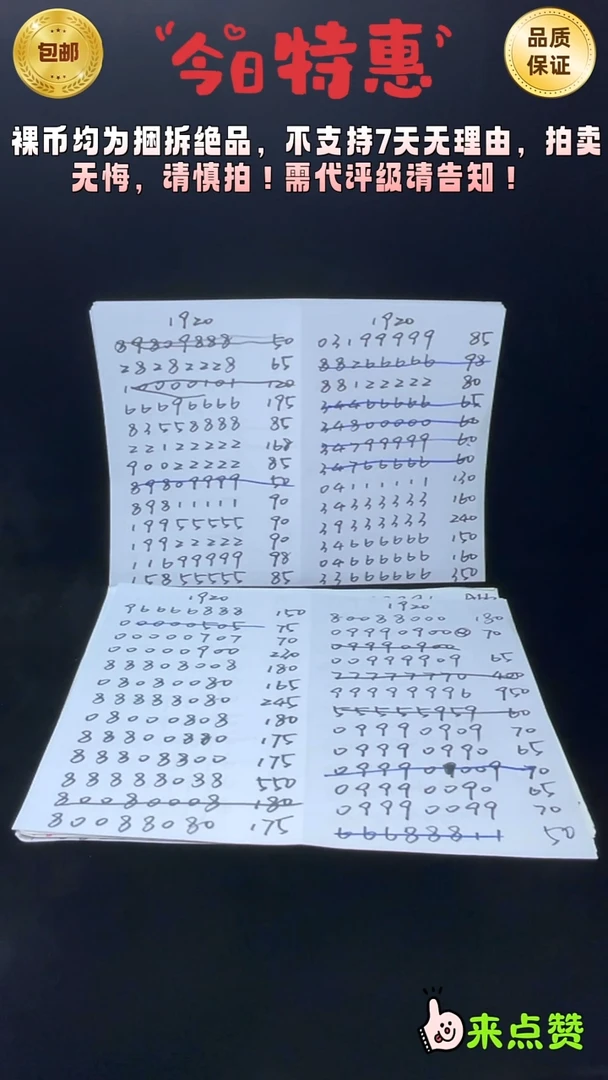 包邮
今日特惠
品质
保证
裸币均为捆拆绝品，不支持7天无理由，拍卖
无悔，请慎拍！需代评级请告知！
1920
89809888 50
28282228 65
10000101 120
66696666 195
83558888 85
22122222 168
90022222 85
89809999 50
89811111 90
19955555 90
19922222 90
11699999 98
15855555 85
1920
03199999 85
88266666 98
88122222 80
34466666 65
34800000 60
34799999 60
34766666 60
04111111 130
34333333 160
39333333 240
34666666 150
04666666 160
33666666 350
1920
96666888 150
00000505 75
00000707 70
00000900 230
88808008 180
08080080 165
88888080 245
08000808 180
88800880 175
88808800 175
88888088 550
80080008 180
80088080 175
1920
80088000 180
09990900 70
09990900
00999909 65
77777770 400
99999996 950
55555959 60
09990909 70
09990990 65
0999 009 70
09990090 65
09990099 70
66688811 65
来点赞